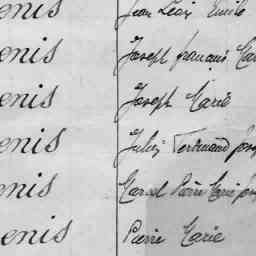 enis Jean Léon Emile
enis Joseph françois
enis Joseph Marie
enis Jules Ferdinand
enis Marcel Pierre Marie
enis Pierre Marie